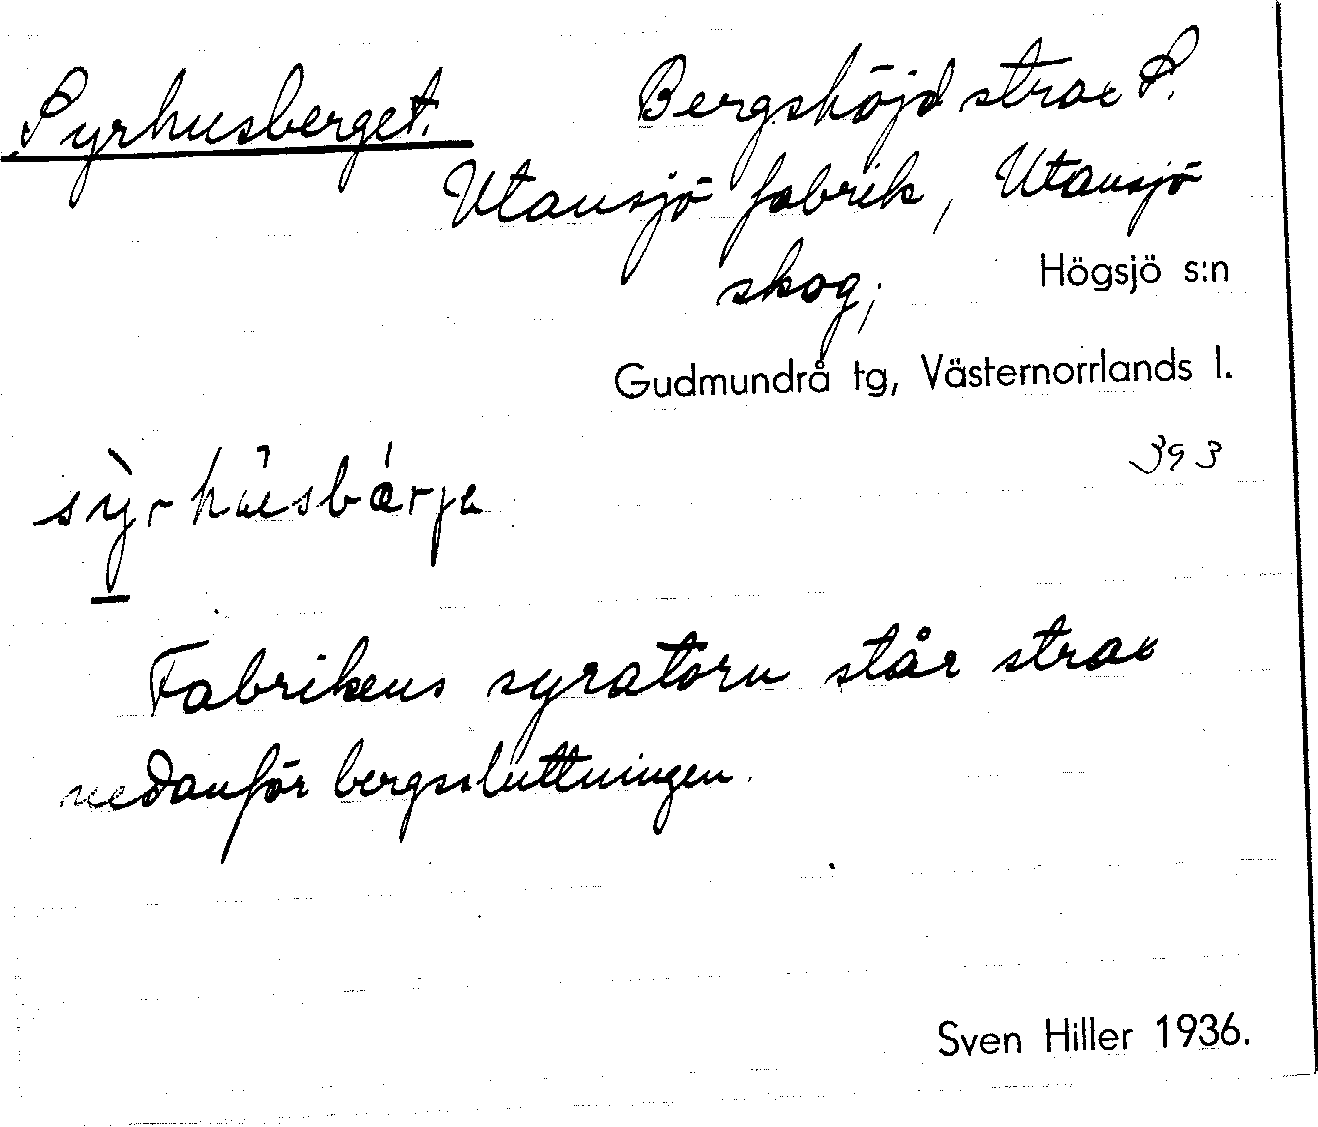 Syrhusberget. Bergshöjd strax S.
Utansjö fabrik, Utansjö
skog; Högsjö s:n
Gudmundrå tg, Västernorrlands l.
393
sỳrhu̇sbárja
Fabrikens syratorn står strax
nedanför bergssluttningen.
Sven Hiller 1936.